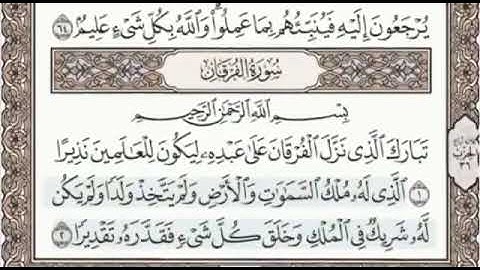 يُرْجَعُونَ إِلَيْهِ فَيُنَبِّئُهُم بِمَا عَمِلُوا۟ وَٱللَّهُ بِكُلِّ شَىْءٍ عَلِيمٌۢ ٦٤
سُورَةُ الْفُرْقَانِ
بِسْمِ ٱللَّهِ ٱلرَّحْمَٰنِ ٱلرَّحِيمِ
تَبَارَكَ ٱلَّذِى نَزَّلَ ٱلْفُرْقَانَ عَلَىٰ عَبْدِهِۦ لِيَكُونَ لِلْعَٰلَمِينَ نَذِيرًا
١ ٱلَّذِى لَهُۥ مُلْكُ ٱلسَّمَٰوَٰتِ وَٱلْأَرْضِ وَلَمْ يَتَّخِذْ وَلَدًا وَلَمْ يَكُن
لَّهُۥ شَرِيكٌ فِى ٱلْمُلْكِ وَخَلَقَ كُلَّ شَىْءٍ فَقَدَّرَهُۥ تَقْدِيرًا ٢